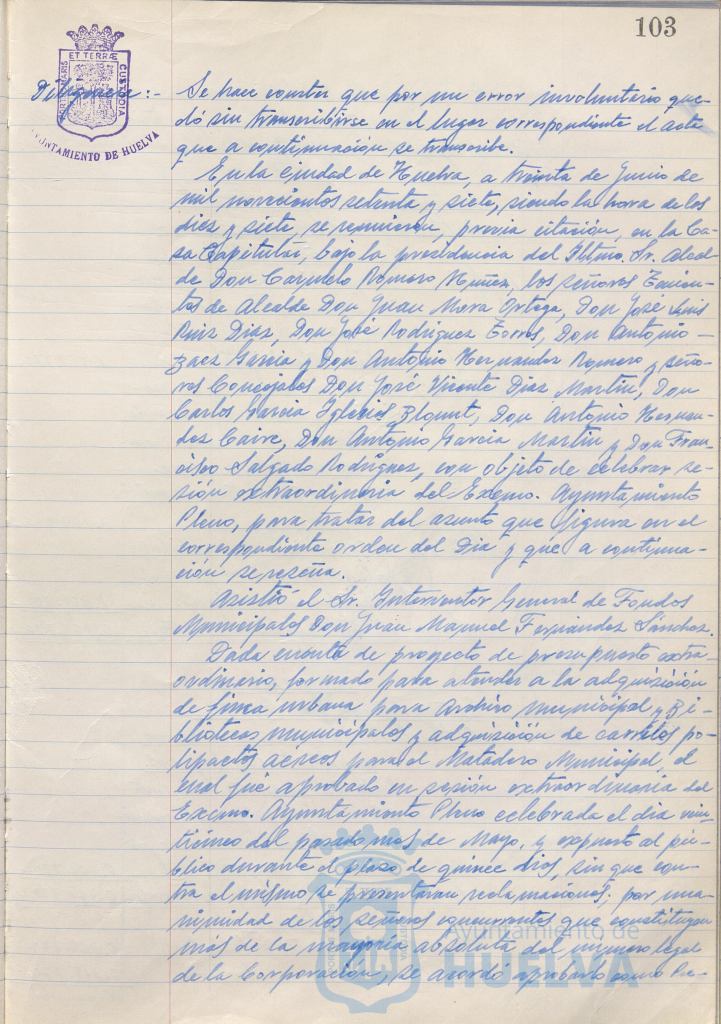 103
PORTUS MARIS ET TERRÆ CUSTODIA
AYUNTAMIENTO DE HUELVA
Diligencia:- Se hace constar que por un error involuntario que-
dó sin transcribirse en el lugar correspondiente el acta
que a continuación se transcribe.
En la ciudad de Huelva, a treinta de Junio de
mil novecientos setenta y siete, siendo la hora de las
diez y siete, se reunieron, previa citación, en la Ca-
sa Capitular, bajo la presidencia del Iltmo. Sr. Alcal-
de Don Carmelo Romero Núñez, los señores Tenien-
tes de Alcalde Don Juan Mora Ortega, Don José Luis
Ruiz Díaz, Don José Rodríguez Torres, Don Antonio
García y Don Antonio Hernández Romero y seño-
res Concejales Don José Vicente Díaz Martín, Don
Carlos García Iglesias Blount, Don Antonio Hernán-
dez Caire, Don Antonio García Martín y Don Fran-
cisco Salgado Rodríguez, con objeto de celebrar se-
sión extraordinaria del Excmo. Ayuntamiento
Pleno, para tratar del asunto que figura en el
correspondiente orden del Dia y que a continua-
ción se reseña.
Asistió el Sr. Interventor General de Fondos
Municipales Don Juan Manuel Fernández Sánchez.
Dada cuenta de proyecto de presupuesto extra-
ordinario, formado para atender a la adquisición
de finca urbana para Archivo Municipal y Bi-
bliotecas municipales y adquisición de carriles
aereos para el Matadero Municipal, el
cual fué aprobado en sesión extraordinaria del
Excmo. Ayuntamiento Pleno celebrada el dia vein-
ticinco del pasado mes de Mayo, y expuesto al pú-
blico durante el plazo de quince dias, sin que con-
tra el mismo se presentaran reclamaciones; por una-
nimidad de los señores concurrentes que constituyen
más de la mayoría absoluta del número legal
de la Corporación, se acordó aprobarlo como Pre-
Ayuntamiento de
HUELVA